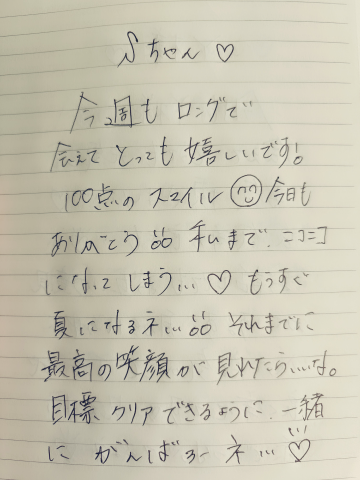 Sちゃん ♡
今週も ロングで
会えて とっても 嬉しいです!
100点の スマイル 今日も
ありがとう 私まで、ニコニコ
になって しまう... ♡ もうすぐ
夏になるネ... それまでに
最高の笑顔が 見れたらいいな。
目標 クリア できるように、一緒
に がんばろー ネ... ♡